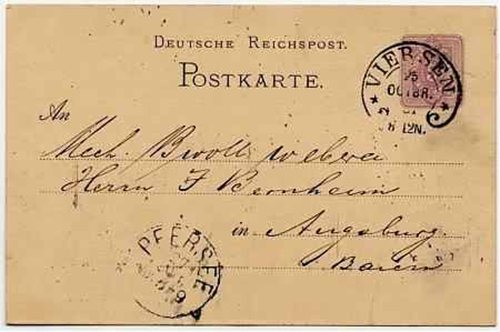 DEUTSCHE REICHSPOST.
POSTKARTE.
VIERSEN
25
OCTBR.
8-12N.
An
Mech. Bwollweberei
Herrn J Bernheim
in Augsburg.
Baiern
PFERSEE